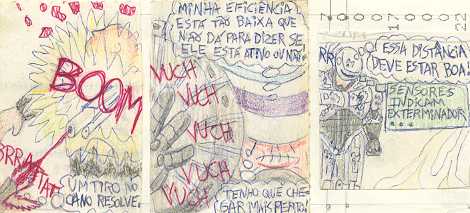 BOOM
RRATATAT
UM TIRO NO
CANO RESOLVE.
MINHA EFICIÊNCIA
ESTÁ TÃO BAIXA QUE
NÃO DÁ PARA DIZER SE
ELE ESTÁ ATIVO OU NÃO!
VUCH
VUCH
VUCH
VUCH
VUCH
TENHO QUE CHE-
GAR MAIS PERTO!
17000
22
RR
ESSA DISTÂNCIA
DEVE ESTAR BOA!
SENSORES
INDICAM
EXTERMINADOR
...